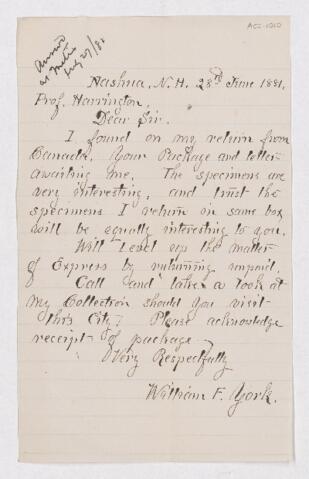 Nashua, N.H. 28th June 1881.
Prof. Harrington,
Dear Sir.
I found on my return from
Canada, Your Package and letter
awaiting me. The specimens are
very interesting, and trust the
specimens I return in same box
will be equally interesting to you.
Will Level up the matter
of Express by returning unpaid.
Call and take a look at
my Collection should you visit
this City? Please acknowledge
receipt of package.
Very Respectfully
William F. York.